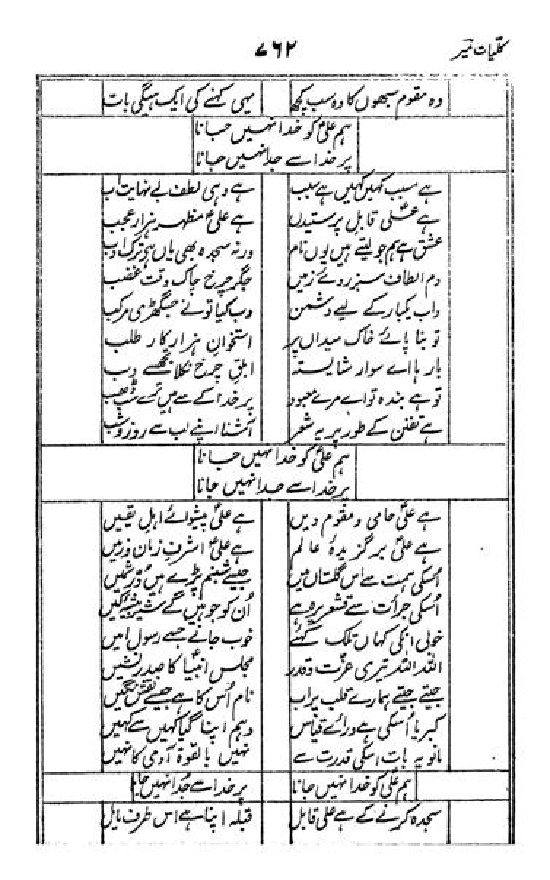 کلیات میر
۷۶۲
وہ مقوم سبھوں کا وہ سب کچھ یہی کہنے کی ایک ہیگی بات
ہم علیؑ کو خدا نہیں جانا
پر خدا سے جدا نہیں جانا
ہے سبب کہیں کہیں ہے سبب ہے وہی لطف بے نہایت اب
ہے علی قابل پرستیدن ہے علیؑ مظہر ہزار عجب
عشق ہے ہم جو لیتے ہیں یوں نام ورنہ سجدہ بھی یاں ہی ترک ادب
دم الطاف سبز روئے زمیں جگر چرخ چاک وقت غضب
داب یکبار کے لیے دشمن وب کیا تونے جسگھڑی مرکب
تو بنا پائے خاک میداں پر استخوان ہزار کار طلب
بارہا اے سوار شایستہ ابلق چرخ نکلا تجھسے دب
تو ہے بندہ تو اے مرے معبود پر خدا کے سے ہیں ترے ڈھب
ہے تفنن کے طور پر یہ شعر آشنا اپنے لب سے روز و شب
ہم علیؑ کو خدا نہیں جانا
پر خدا سے جدا نہیں جانا
ہے علیؑ حامی و مقوم دیں ہے علیؑ پیشوائے اہل یقیں
ہے علیؑ برگزیدۂ عالم ہے علیؑ اشرف زمان و زمیں
اسکی ہمت سے اس گلستاں میں جیسے شبنم پڑے ہیں در ثمیں
اسکی جرأت سے قشعریرہ ہے ان کو جو ہیں گے شیر بیشۂ کیں
خوبی انکی کہاں تلک کہئے خوب جانے جسے رسول امیں
اللہ اللہ تیری عزت و قدر مجلس انبیا کا صدر نشیں
جیتے جیتے ہمارے قلب پر اب نام اس کا ہے جیسے نقش نگیں
کبریا اسکی ہے ورائے قیاس وہم اپنا گیا کہیں سے کہیں
مانو یہ بات اسکی قدرت سے نہیں بالقوۃ آدمی کا نہیں
ہم علیؑ کو خدا نہیں جانا پر خدا سے جدا نہیں جانا
سجدہ کرنے کے ہے علی قابل قبلہ اپنا ہے اس طرف مایل